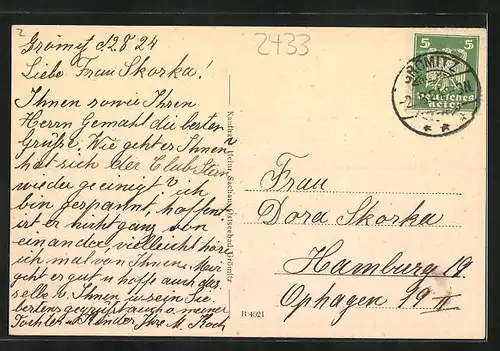 2
2433
Grömitz d. 2. 8. 24
Liebe Frau Skorka!
Ihnen sowie Ihren
Herrn Gemahl die besten
Grüße. Wie geht es Ihnen?
hat sich der Club Stern
wieder geeinigt? ich
bin gespannt, hoffent
ist er nicht ganz von
einander, vielleicht höre
ich mal von Ihnen. Mir
geht es gut u. hoffe auch das
selbe v. Ihnen zu sein Sie
bestens gegrüßt auch v. meiner
Tochter u. Kinder Ihre M. Koch
Kaufhaus Heinr. Sachau, Ostseebad Grömitz
R 4021
5 5
Deutsches
Reich
GRÖMITZ
Frau
Dora Skorka
Hamburg 19
Ophagen 19 II